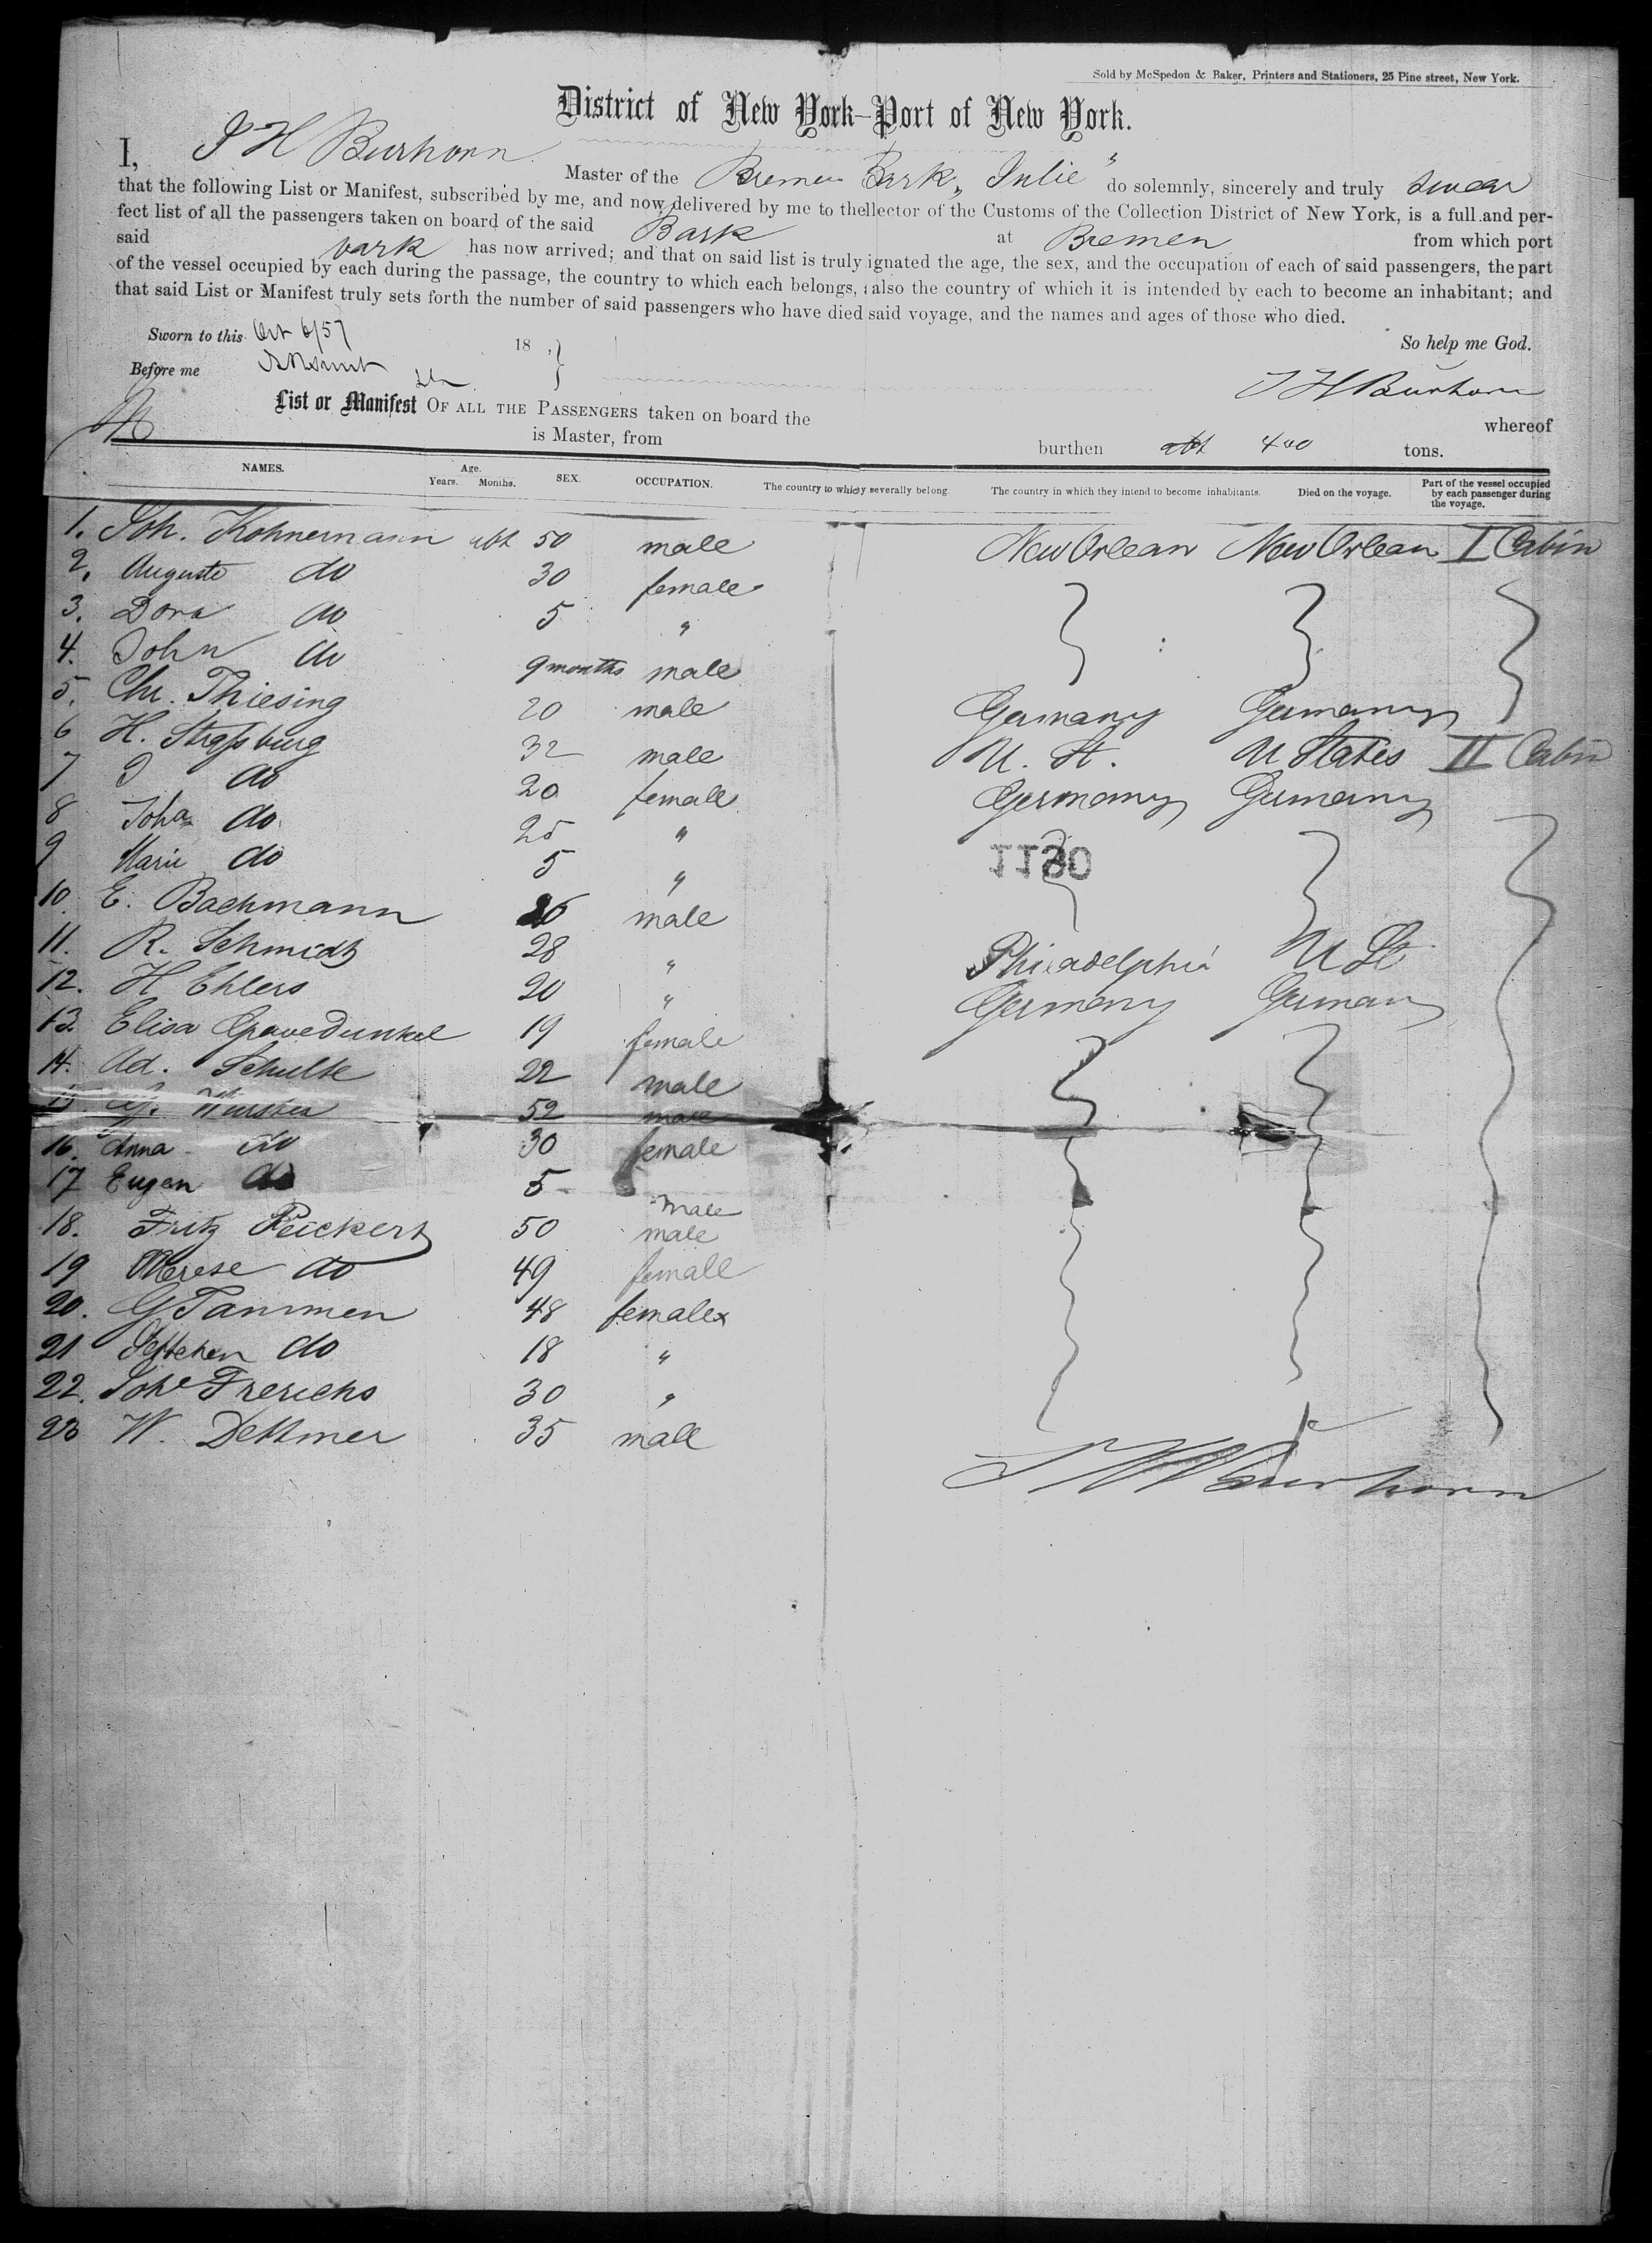 Sold by McSpedon & Baker, Printers and Stationers, 25 Pine street, New York.
District of New York—Port of New York.
I, J H Burhorn Master of the Bremen Bark „Julie" do solemnly, sincerely and truly swear
that the following List or Manifest, subscribed by me, and now delivered by me to the llector of the Customs of the Collection District of New York, is a full and per-
fect list of all the passengers taken on board of the said Bark at Bremen from which port
said bark has now arrived; and that on said list is truly ignated the age, the sex, and the occupation of each of said passengers, the part
of the vessel occupied by each during the passage, the country to which each belongs, also the country of which it is intended by each to become an inhabitant; and
that said List or Manifest truly sets forth the number of said passengers who have died said voyage, and the names and ages of those who died.
Sworn to this Oct 6/57 18 , } So help me God.
Before me J H Burhorn
List or Manifest OF ALL THE PASSENGERS taken on board the whereof
is Master, from burthen abt 400 tons.
NAMES. Age. Years. Months. SEX. OCCUPATION. The country to which y severally belong. The country in which they intend to become inhabitants. Died on the voyage. Part of the vessel occupied by each passenger during the voyage.
1. Joh. Kohnemann abt 50 male New Orlean New Orlean I Cabin
2. Auguste do 30 female
3. Dora do 5 "
4. John do 9 months male
5. Chr. Thiesing 20 male Germany Germany
6 H. Straßburg 32 male U. St. U States II Cabin
7 do 20 female Germany Germany
8 Joha do 25 "
9 Marie do 5 "
1130
10. E. Bachmann 26 male
11. R. Schmidt 28 " Philadelphia U St
12. H Ehlers 20 " Germany German
13. Elisa Gravedunkel 19 female
14. Ad. Schulte 22 male
15 Wurster 52 male
16. Anna do 30 female
17 Eugen do 5 male
18. Fritz Reickert 50 male
19 Therese do 49 female
20. G Tammen 48 female
21 do 18 "
22. Johe Frerichs 30 "
23 W. Dettmer 35 male
J H Burhorn